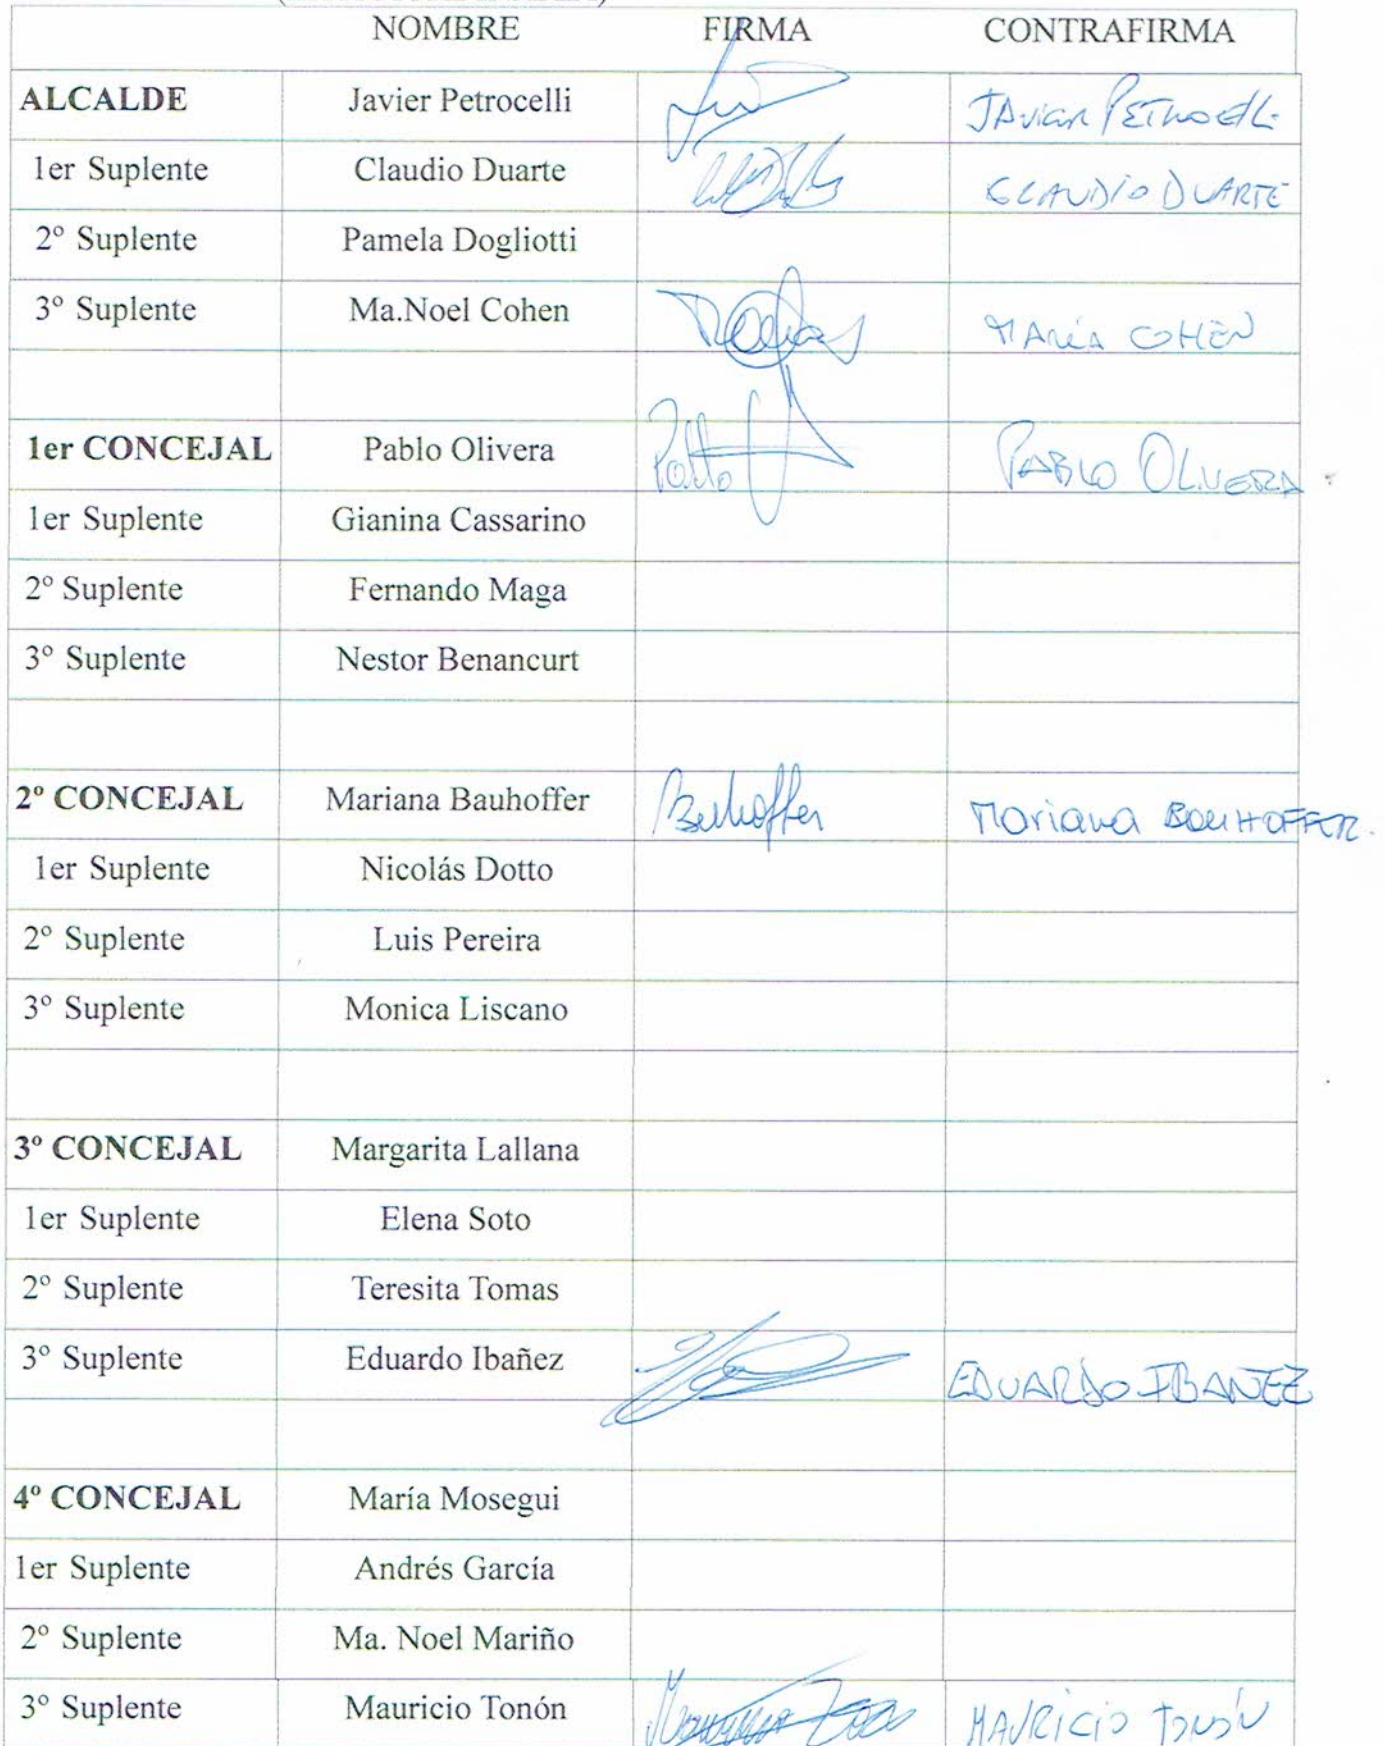 NOMBRE FIRMA CONTRAFIRMA
ALCALDE Javier Petrocelli Javier Petrocelli
1er Suplente Claudio Duarte CLAUDIO DUARTE
2º Suplente Pamela Dogliotti
3º Suplente Ma.Noel Cohen MARÍA COHEN
1er CONCEJAL Pablo Olivera Pablo PABLO OLIVERA
1er Suplente Gianina Cassarino
2º Suplente Fernando Maga
3º Suplente Nestor Benancurt
2º CONCEJAL Mariana Bauhoffer Bauhoffer Mariana BAUHOFFER.
1er Suplente Nicolás Dotto
2º Suplente Luis Pereira
3º Suplente Monica Liscano
3º CONCEJAL Margarita Lallana
1er Suplente Elena Soto
2º Suplente Teresita Tomas
3º Suplente Eduardo Ibañez EDUARDO IBAÑEZ
4º CONCEJAL María Mosegui
1er Suplente Andrés García
2º Suplente Ma. Noel Mariño
3º Suplente Mauricio Tonón MAURICIO TONÓN